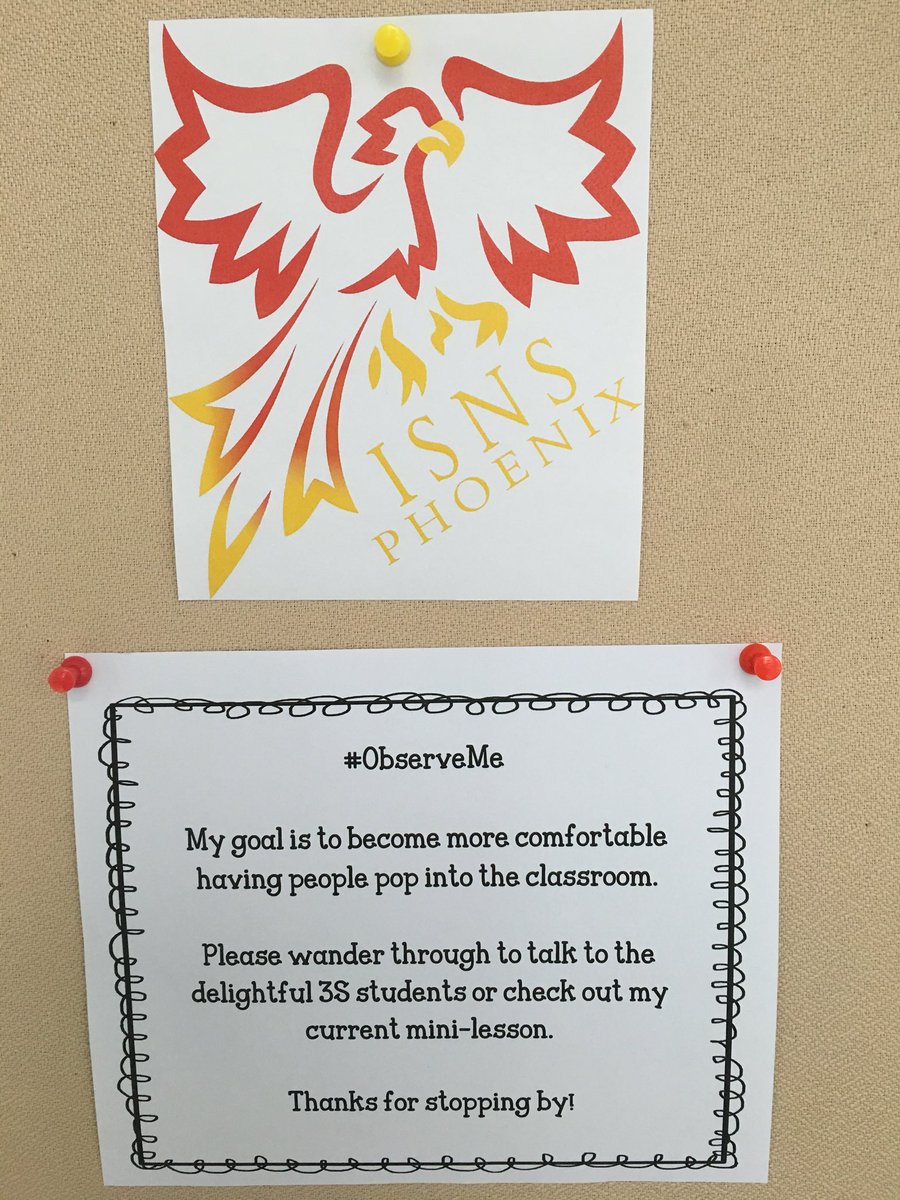 ISNS
PHOENIX
#ObserveMe
My goal is to become more comfortable
having people pop into the classroom.
Please wander through to talk to the
delightful 3S students or check out my
current mini-lesson.
Thanks for stopping by!